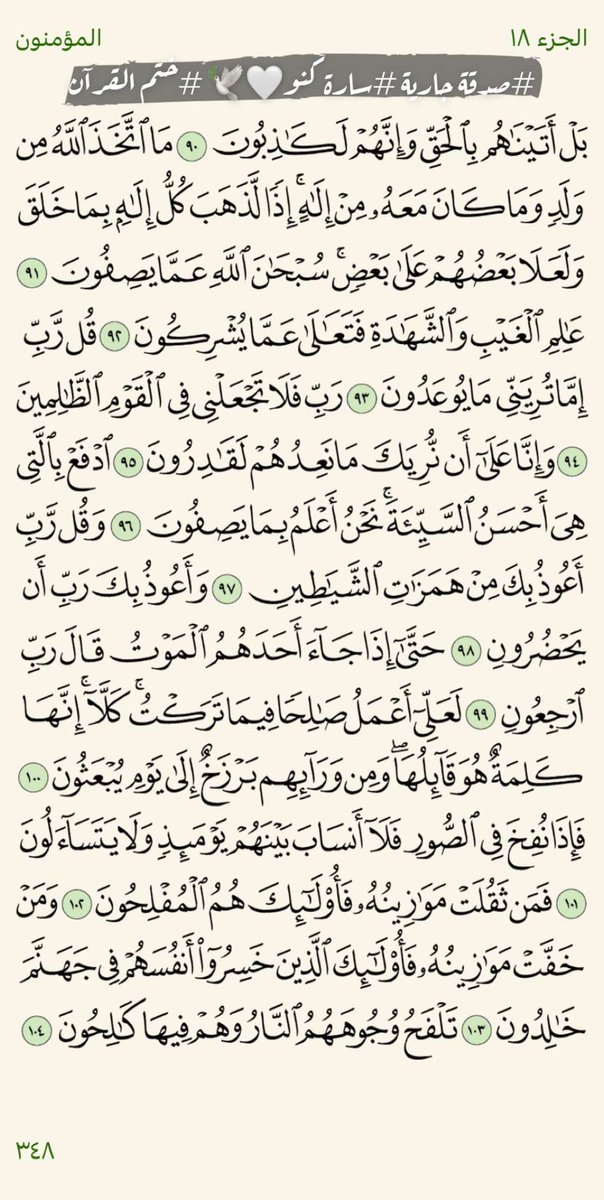 الجزء ١٨
المؤمنون
#صدقة جارية #سارة كنو🤍🕊 #ختم القرآن
بَلْ أَتَيْنَٰهُم بِٱلْحَقِّ وَإِنَّهُمْ لَكَٰذِبُونَ ٩٠ مَا ٱتَّخَذَ ٱللَّهُ مِن
وَلَدٍ وَمَا كَانَ مَعَهُۥ مِنْ إِلَٰهٍ ۚ إِذًا لَّذَهَبَ كُلُّ إِلَٰهٍۭ بِمَا خَلَقَ
وَلَعَلَا بَعْضُهُمْ عَلَىٰ بَعْضٍ ۚ سُبْحَٰنَ ٱللَّهِ عَمَّا يَصِفُونَ ٩١
عَٰلِمِ ٱلْغَيْبِ وَٱلشَّهَٰدَةِ فَتَعَٰلَىٰ عَمَّا يُشْرِكُونَ ٩٢ قُل رَّبِّ
إِمَّا تُرِيَنِّي مَا يُوعَدُونَ ٩٣ رَبِّ فَلَا تَجْعَلْنِي فِي ٱلْقَوْمِ ٱلظَّٰلِمِينَ
٩٤ وَإِنَّا عَلَىٰٓ أَن نُّرِيَكَ مَا نَعِدُهُمْ لَقَٰدِرُونَ ٩٥ ٱدْفَعْ بِٱلَّتِي
هِيَ أَحْسَنُ ٱلسَّيِّئَةَ ۚ نَحْنُ أَعْلَمُ بِمَا يَصِفُونَ ٩٦ وَقُل رَّبِّ
أَعُوذُ بِكَ مِنْ هَمَزَٰتِ ٱلشَّيَٰطِينِ ٩٧ وَأَعُوذُ بِكَ رَبِّ أَن
يَحْضُرُونِ ٩٨ حَتَّىٰٓ إِذَا جَآءَ أَحَدَهُمُ ٱلْمَوْتُ قَالَ رَبِّ
ٱرْجِعُونِ ٩٩ لَعَلِّيٓ أَعْمَلُ صَٰلِحًا فِيمَا تَرَكْتُ ۚ كَلَّآ ۚ إِنَّهَا
كَلِمَةٌ هُوَ قَآئِلُهَا ۖ وَمِن وَرَآئِهِم بَرْزَخٌ إِلَىٰ يَوْمِ يُبْعَثُونَ ١٠٠
فَإِذَا نُفِخَ فِي ٱلصُّورِ فَلَآ أَنسَابَ بَيْنَهُمْ يَوْمَئِذٍ وَلَا يَتَسَآءَلُونَ
١٠١ فَمَن ثَقُلَتْ مَوَٰزِينُهُۥ فَأُو۟لَٰٓئِكَ هُمُ ٱلْمُفْلِحُونَ ١٠٢ وَمَنْ
خَفَّتْ مَوَٰزِينُهُۥ فَأُو۟لَٰٓئِكَ ٱلَّذِينَ خَسِرُوٓا۟ أَنفُسَهُمْ فِي جَهَنَّمَ
خَٰلِدُونَ ١٠٣ تَلْفَحُ وُجُوهَهُمُ ٱلنَّارُ وَهُمْ فِيهَا كَٰلِحُونَ ١٠٤
٣٤٨